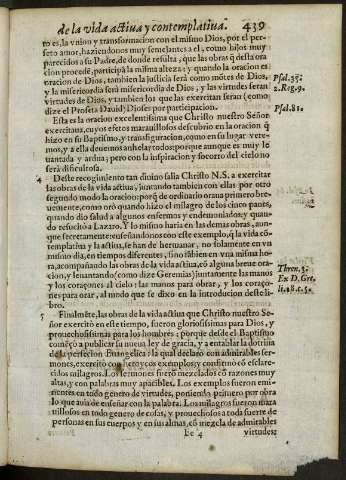 de la vida activa y contemplativa. 439
to es, la vnion y transformacion con el mismo Dios, por el per-
feto amor, haziendonos muy semejantes a el, como hijos muy
parecidos a su Padre, de donde resulta, que las obras q̃ desta ora
cion procedẽ, participã la misma alteza: y quando la oracion es
oracion de Dios, tambien la justicia serà como mõtes de Dios,
y la misericordia serà misericordia de Dios, y las virtudes seran
virtudes de Dios, y tambien los que las exercitan seran (como
dize el Profeta Dauid) Dioses por participacion.
Psal. 35.
2. Reg. 9.
Psal. 81.
Esta es la oracion excelentissima que Christo nuestro Señor
exercitaua, cuyos efetos marauillosos descubrio en la oracion q̃
hizo en su Baptismo, y transfiguracion, como en su lugar vere-
mos, y a ella deuemos anhelar todos: porque aunque es muy le
uantada y ardua; pero con la inspiracion y socorro del cielo no
serà dificultosa.
4 Deste recogimiento tan diuino salia Christo N.S. a exercitar
las obras de la vida actiua, juntando tambien con ellas por otro
segundo modo la oracion: porq̃ de ordinario oraua primero bre-
uemente, como orò quando hizo el milagro de los cinco panes,
quando dio salud a algunos enfermos y endemoniados; y quan-
do resucitò a Lazaro. Y lo mismo haria en las demas obras, aun-
que secretamente enseñandonos con este exemplo, q̃ la vida cõ-
templatiua y la actiua, se han de hermanar, no solamente en vn
mismo dia, en tiempos diferentes, sino tãbien en vna misma ho-
ra, acompañando las obras de la vida actiua, cõ alguna breue ora-
cion, y leuantando (como dize Geremias) juntamente las manos
y los coraçones al cielo: las manos para obrar, y los coraço-
nes para orar, al modo que se dixo en la introducion deste li-
bro.
Thren. 3.
Ex D. Gre.
li. 18. c. 5.
5 Finalmẽte, las obras de la vida actiua que Christo nuestro Se-
ñor exercitò en este tiempo, fueron gloriosissimas para Dios, y
prouechosissimas para los hombres; porque desde el Baptismo
començò a publicar su nueua ley de gracia, y a entablar la dotrina
de la perfecion Euangelica: la qual declarò con admirables ser-
mones, exercitò con heroycos exemplos, y confirmò cõ esclare-
cidos milagros. Los sermones fuerõ mezclados cõ razones muy
altas, y con palabras muy apacibles. Los exemplos fueron emi-
nentes en todo genero de virtudes, poniendo primero por obra
lo que auia de enseñar con la palabra. Los milagros fueron mara
uillosos en todo genero de cosas, y prouechosos a toda suerte de
personas en sus cuerpos y en sus almas, cõ mezcla de admirables
Ee 4 virtudes: